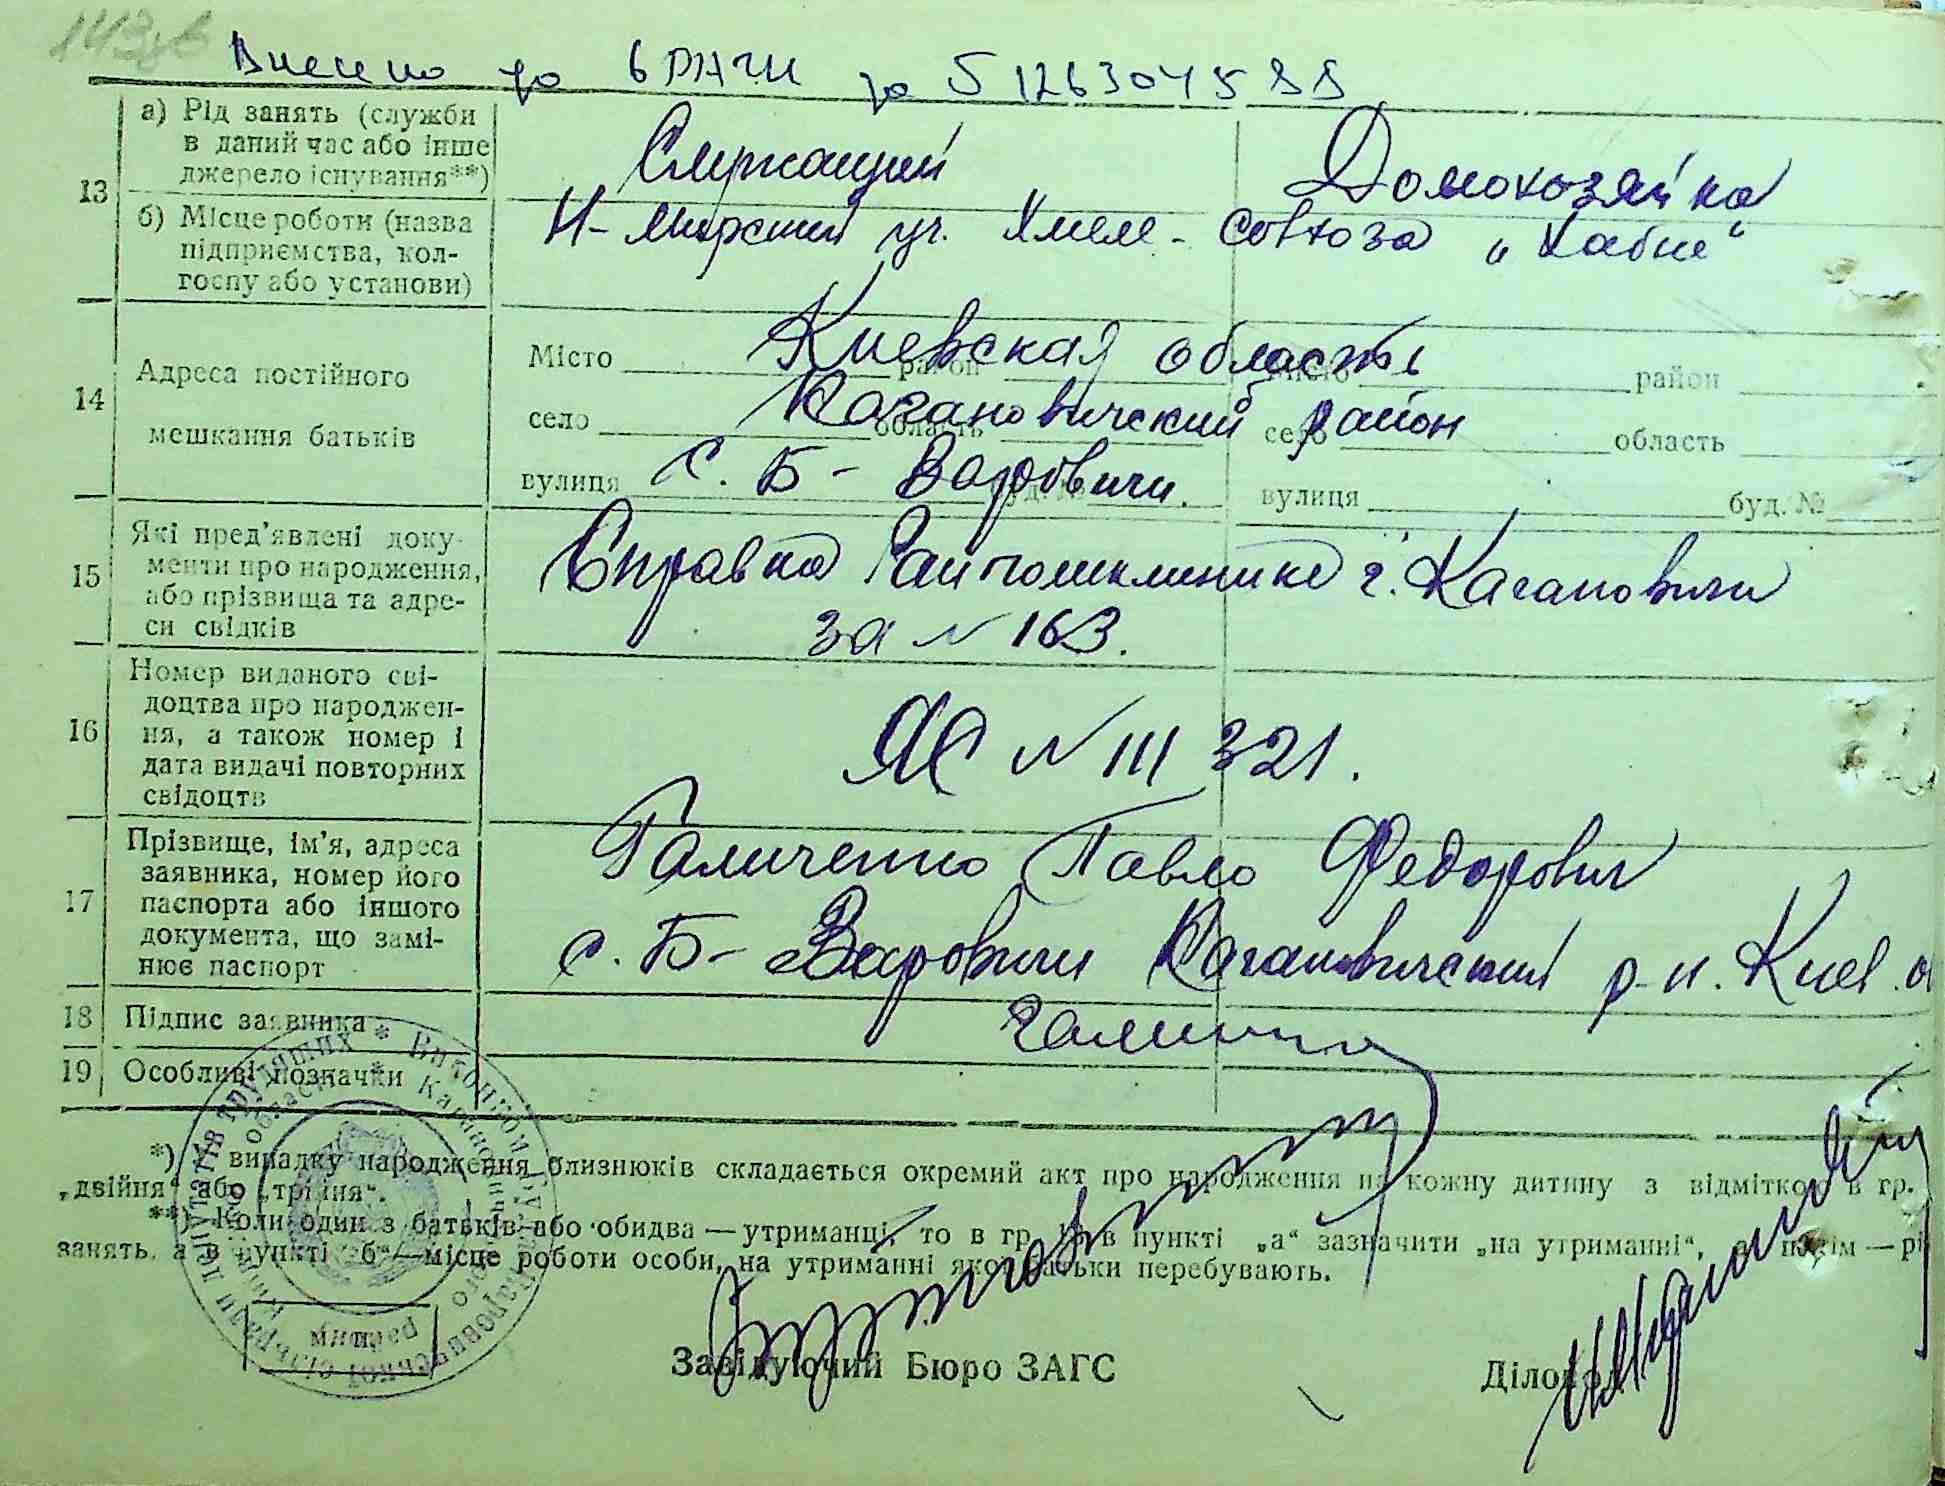 143
Внесено до
а) Рід занять (служби
в даний час або інше
джерело існування**)
Служащий
Домохозяйка
13
б) Місце роботи (назва
підприємства, кол-
госпу або установи)
Н-Мирский уч. Хмеле-Совхоза „Кабне“
14
Адреса постійного
мешкання батьків
Місто район Місто район
Киевская область
село область село область
Кагановичский район
вулиця вулиця буд. №
с. Б-Варовичи.
15
Які пред’явлені доку-
менти про народження,
або прізвища та адре-
си свідків
Справка Райполиклинике г. Кагановичи
за № 163.
16
Номер виданого сві-
доцтва про народжен-
ня, а також номер і
дата видачі повторних
свідоцтв
ЯС № 111321.
17
Прізвище, ім’я, адреса
заявника, номер його
паспорта або іншого
документа, що замі-
нює паспорт
Галиченко Павло Федорович
с. Б-Варовичи Кагановичский р-н. Киев. о
18 Підпис заявника
19 Особливі позначки
*) У випадку народження близнюків складається окремий акт про народження на кожну дитину з відміткою в гр.
„двійня“ або „трійня“.
**) Коли один з батьків або обидва — утриманці, то в гр. 13 в пункті „а“ зазначити „на утриманні“, а потім — рі
занять, а в пункті „б“ — місце роботи особи, на утриманні якої батьки перебувають.
Завідуючий Бюро ЗАГС
Діловод